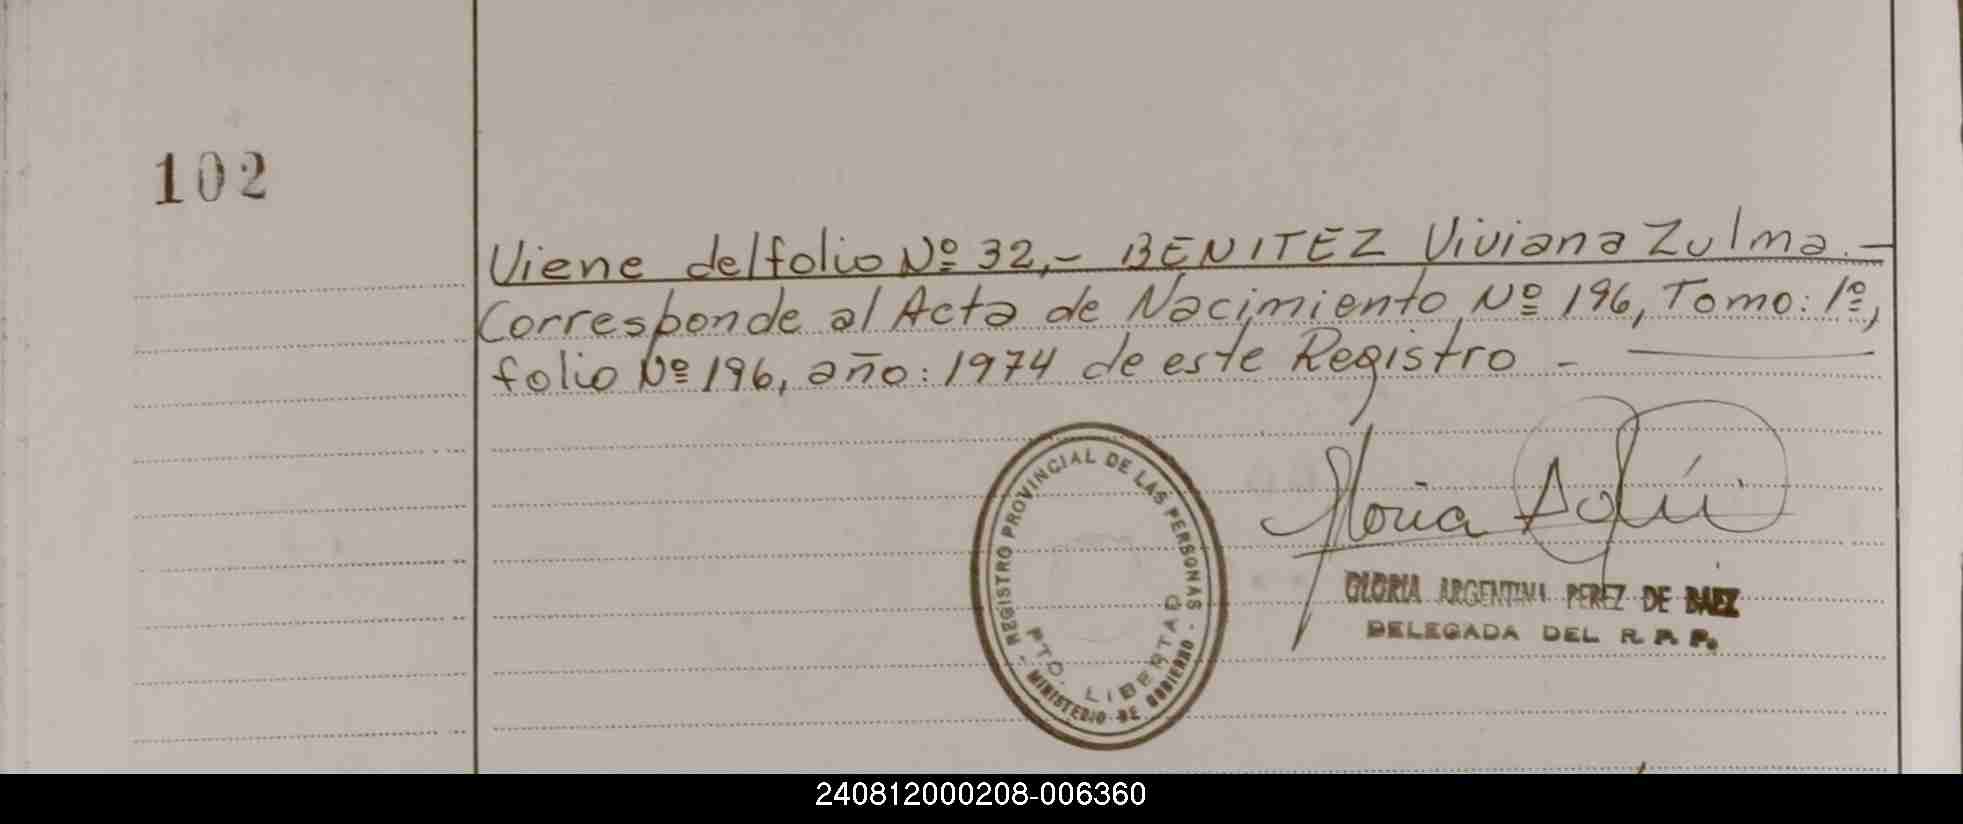 102
Viene del folio Nº 32,- BENITEZ Viviana Zulma.-
Corresponde al Acta de Nacimiento Nº 196, Tomo: 1º,
folio Nº 196, año: 1974 de este Registro -
REGISTRO PROVINCIAL DE LAS PERSONAS
PTO. LIBERTAD
MINISTERIO DE GOBIERNO
GLORIA ARGENTINA PEREZ DE BAEZ
DELEGADA DEL R. P. P.
240812000208-006360